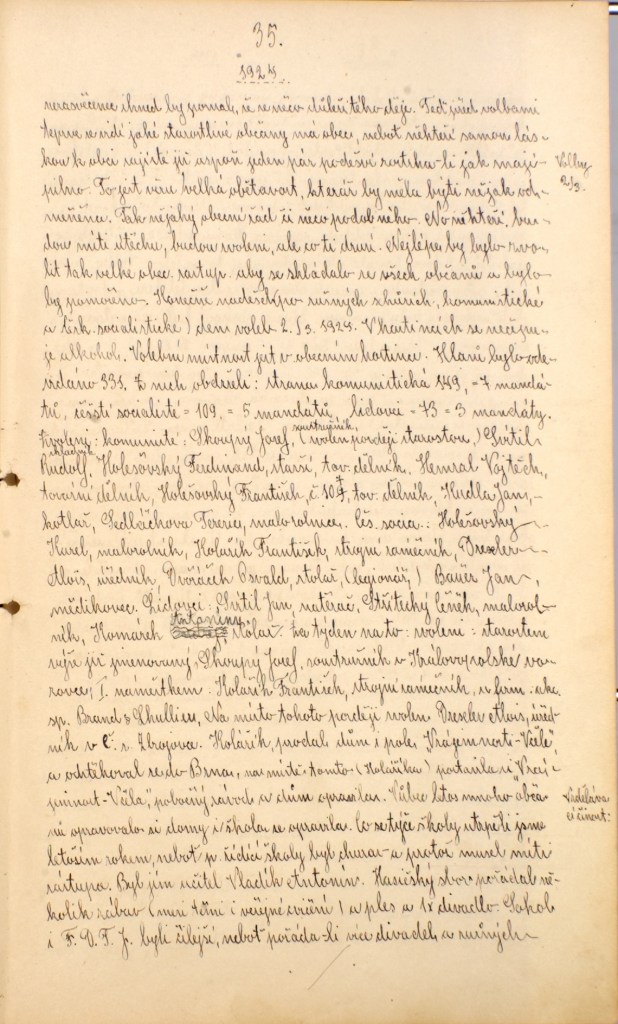 35.
1924.
nezasvěcenec ihned by poznal, že se něco důležitého děje. Teď před volbami
teprve se vidí jaké starostlivé občany má obec, neboť někteří samou lás-
kou k obci zajisté již aspoň jeden pár podešví roztrha-li jak mají
Volby
2/3.
pilno. To jest věru velká obětavost, kteráž by měla býti nějak od-
měněna. Tak nějaký obecní řád či něco podobného. No někteří, bu-
dou míti útěchu, budou zvoleni, ale co ti druzí. Nejlépe by bylo zvo-
lit tak velké obec. zastup. aby se skládalo ze všech občanů a bylo
by pomoženo. Konečně nadešel (po ručných schůzích, komunistické
a česk. socialistické) den voleb 2./3. 1924. V hostincích se nečepu-
je alkohol. Volební místnost jest v obecním hostinci. Hlasů bylo ode-
vzdáno 331. Z nich obdrželi: strana komunistická 149, = 7 mandá-
tů, čeští socialisté = 109, = 5 mandátů, lidovci = 73 = 3 mandáty.
soustružník,
Zvoleni: komunisté: Skoupý Josef, (zvolen později starostou,) Sútil
úředník
Rudolf, Holešovský Ferdinand, starší, tov. dělník, Hemzal Vojtěch,
tovární dělník, Holešovský František, č. 104, tov. dělník, Kudla Jan,
kotlář, Sedláčkova Terezie, malorolnice. čes. socia.: Holešovský
Karel, malorolník, Kolářík František, strojní zámečník, Drexler
Alois, úředník, Dvořáček Osvald, stolař, (legionář,) Bauer Jan,
mědikovec. Lidovci: Sútil Jan, natěrač, Střítecký Čeněk, malorol-
Antonín,
ník, Komárek stolař. Za týden na to: zvoleni: starostou
výše již zmenovaný, Skoupý Josef, soustružník v Královopolské vo-
zovce, I. náměstkem: Kolářík František, strojní zámečník, u firm. akc.
sp. Brand & Lhullier, Na místo tohoto později zvolen Drexler Alois, úřed-
ník v Č. s. Zbrojovce. Kolářík, prodal dům i pole, "Vzájemnosti-Včele",
a odstěhoval se do Brna, na místě tomto (Kolaříka) postavila si "Vzáj-
jemnost-Včela," pobočný závod a dům opravila. Vůbec letos mnoho obča-
Vzděláva-
cí činnost:
nů opravovalo si domy i škola se opravila. Co se týče školy utrpěli jsme
letošním rokem, neboť p. řídící školy byl churav a protož musel míti
zástupce. Byl jím učitel Vladík Antonín. Hasičský sbor pořádal ně-
kolik zábav (mezi těmi i veřejné cvičení) a ples a 1x divadlo. Sokol
i F. D. T. J. byli čilejší, neboť pořáda-li více divadel, a ručných